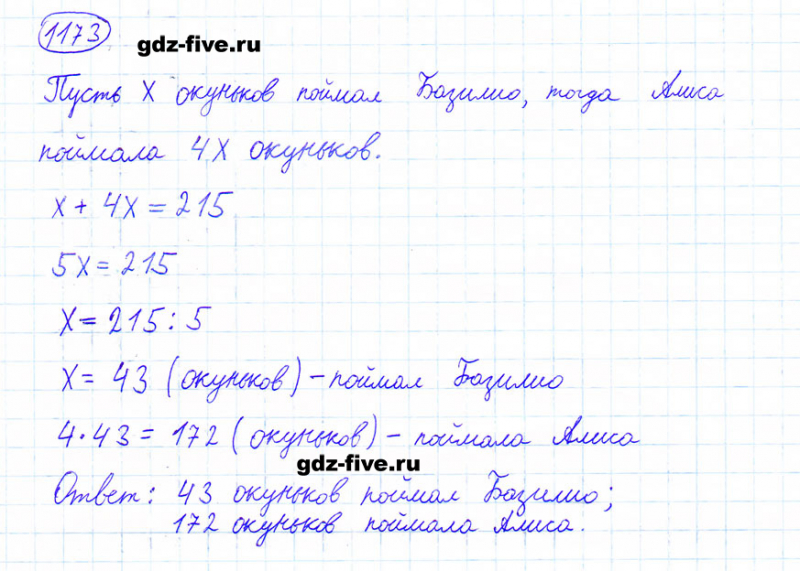 1173
gdz-five.ru
Пусть х окуньков поймал Базилио, тогда Алиса
поймала 4х окуньков.
х + 4х = 215
5х = 215
х = 215 : 5
х = 43 (окуньков) - поймал Базилио
4 · 43 = 172 (окуньков) - поймала Алиса
gdz-five.ru
Ответ: 43 окуньков поймал Базилио;
172 окуньков поймала Алиса.